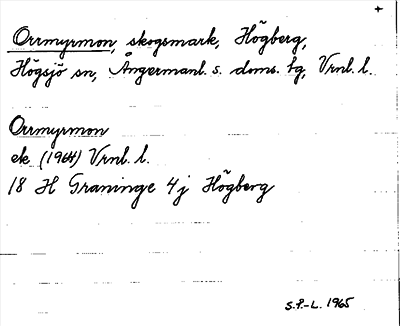 +
Orrmyrmon, skogsmark, Högberg,
Högsjö sn, Ångermanl. s. doms. hg, Vrnl. l.
Orrmyrmon
ek (1964) Vrnl. l.
18 H Graninge 4j Högberg
S.P.-L. 1965